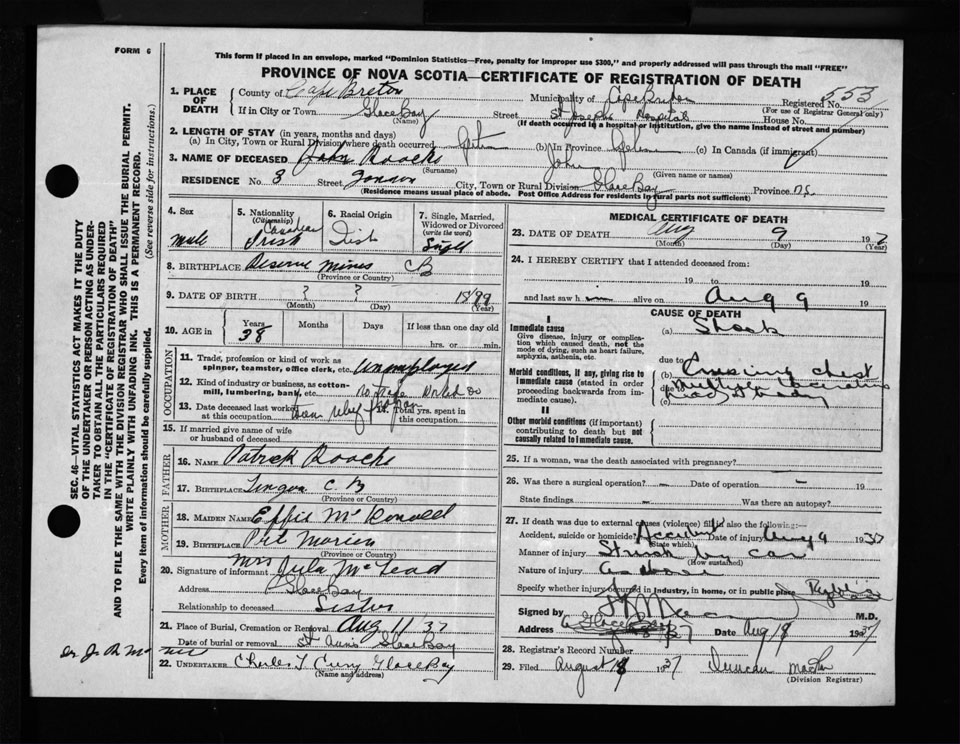 FORM 6
This form if placed in an envelope, marked "Dominion Statistics—Free, penalty for improper use $300," and properly addressed will pass through the mail "FREE"
PROVINCE OF NOVA SCOTIA—CERTIFICATE OF REGISTRATION OF DEATH
1. PLACE OF DEATH
County of Cape Breton Municipality of Cape Breton Registered No. 553
(For use of Registrar General only)
If in City or Town Glace Bay Street St Josephs Hospital House No.
(Name) (If death occurred in a hospital or institution, give the name instead of street and number)
2. LENGTH OF STAY (in years, months and days)
(a) In City, Town or Rural Division where death occurred (b) In Province (c) In Canada (if immigrant)
3. NAME OF DECEASED John
(Surname) (Given name or names)
RESIDENCE No. 3 Street City, Town or Rural Division Glace Bay Province N.S.
(Residence means usual place of abode. Post Office Address for residents in rural parts not sufficient)
4. Sex
male
5. Nationality
(Citizenship)
Canadian
Irish
6. Racial Origin
7. Single, Married, Widowed or Divorced
(write the word)
Single
8. BIRTHPLACE Reserve Mines CB
(Province or Country)
9. DATE OF BIRTH ? ? 1899
(Month) (Day) (Year)
10. AGE in
Years Months Days If less than one day old
38 hrs. or min.
OCCUPATION
11. Trade, profession or kind of work as spinner, teamster, office clerk, etc. Unemployed
12. Kind of industry or business, as cotton-mill, lumbering, bank, etc.
13. Date deceased last worked at this occupation 14. Total yrs. spent in this occupation
15. If married give name of wife or husband of deceased
FATHER
16. NAME Patrick
17. BIRTHPLACE Lingan C B
(Province or Country)
MOTHER
18. MAIDEN NAME Effie
19. BIRTHPLACE Prt Morien
(Province or Country)
20. Signature of informant Mrs McLeod
Address Glace Bay
Relationship to deceased Sister
21. Place of Burial, Cremation or Removal Aug 11 37
Date of burial or removal St Ann's Glace Bay
22. UNDERTAKER Charles Glace Bay
(Name and address)
MEDICAL CERTIFICATE OF DEATH
23. DATE OF DEATH Aug 9 1937
(Month) (Day) (Year)
24. I HEREBY CERTIFY that I attended deceased from:
19 to 19
and last saw him alive on Aug 9 19
CAUSE OF DEATH
I
Immediate cause
Give disease, injury or complication which caused death, not the mode of dying, such as heart failure, asphyxia, asthenia, etc.
(a) Shock
due to
Morbid conditions, if any, giving rise to immediate cause (stated in order proceeding backwards from immediate cause).
(b) chest
due to Multiple
(c)
II
Other morbid conditions (if important) contributing to death but not causally related to immediate cause.
25. If a woman, was the death associated with pregnancy?
26. Was there a surgical operation? — Date of operation — 19
State findings — Was there an autopsy?
27. If death was due to external causes (violence) fill in also the following:—
Accident, suicide or homicide? Accident Date of injury Aug 9 1937
(State which)
Manner of injury Struck by car
(How sustained)
Nature of injury as above
Specify whether injury occurred in industry, in home, or in public place
Signed by M.D.
Address Glace Bay Date Aug 19 1937
28. Registrar's Record Number
29. Filed August 18 1937 Duncan
(Division Registrar)
SEC. 46—VITAL STATISTICS ACT MAKES IT THE DUTY
OF THE UNDERTAKER OR PERSON ACTING AS UNDER-
TAKER TO OBTAIN ALL THE PARTICULARS REQUIRED
IN THE "CERTIFICATE OF REGISTRATION OF DEATH"
AND TO FILE THE SAME WITH THE DIVISION REGISTRAR WHO SHALL ISSUE THE BURIAL PERMIT.
WRITE PLAINLY WITH UNFADING INK. THIS IS A PERMANENT RECORD.
Every item of information should be carefully supplied. (See reverse side for instructions.)